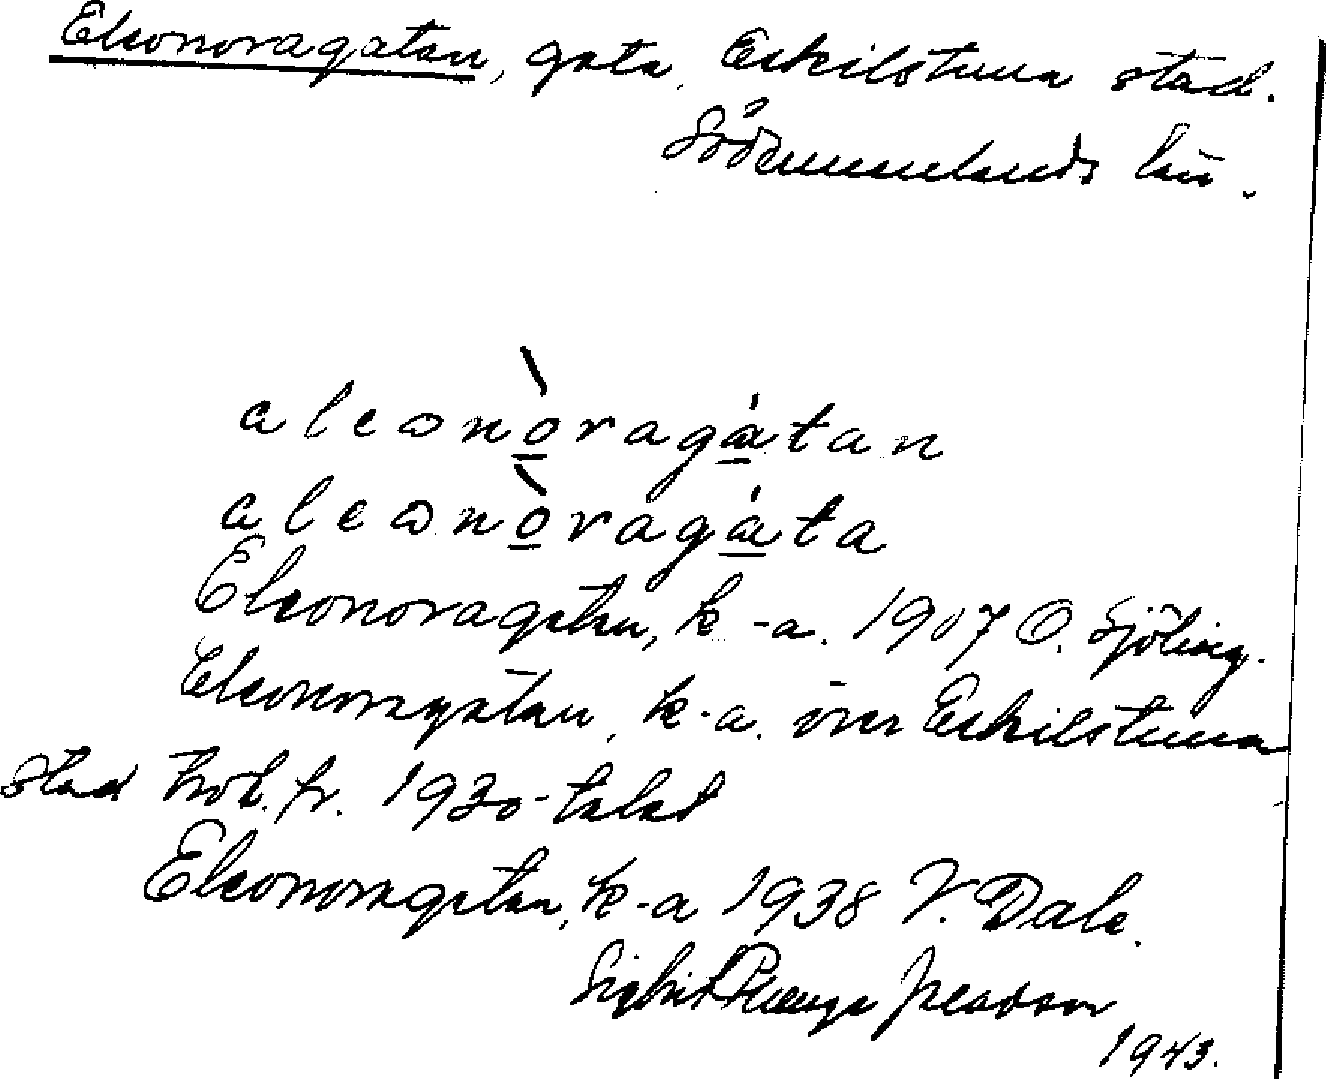 Eleonoragatan, gata, Eskilstuna stad.
Södermanlands län.
aleωnòragátan
aleωnòragáta
Eleonoragatan, k-a. 1907 O. Sjöling.
Eleonoragatan, k-a. över Eskilstuna
stad trol. fr. 1930-talet
Eleonoragatan, k-a 1938 V. Dale.
1943.